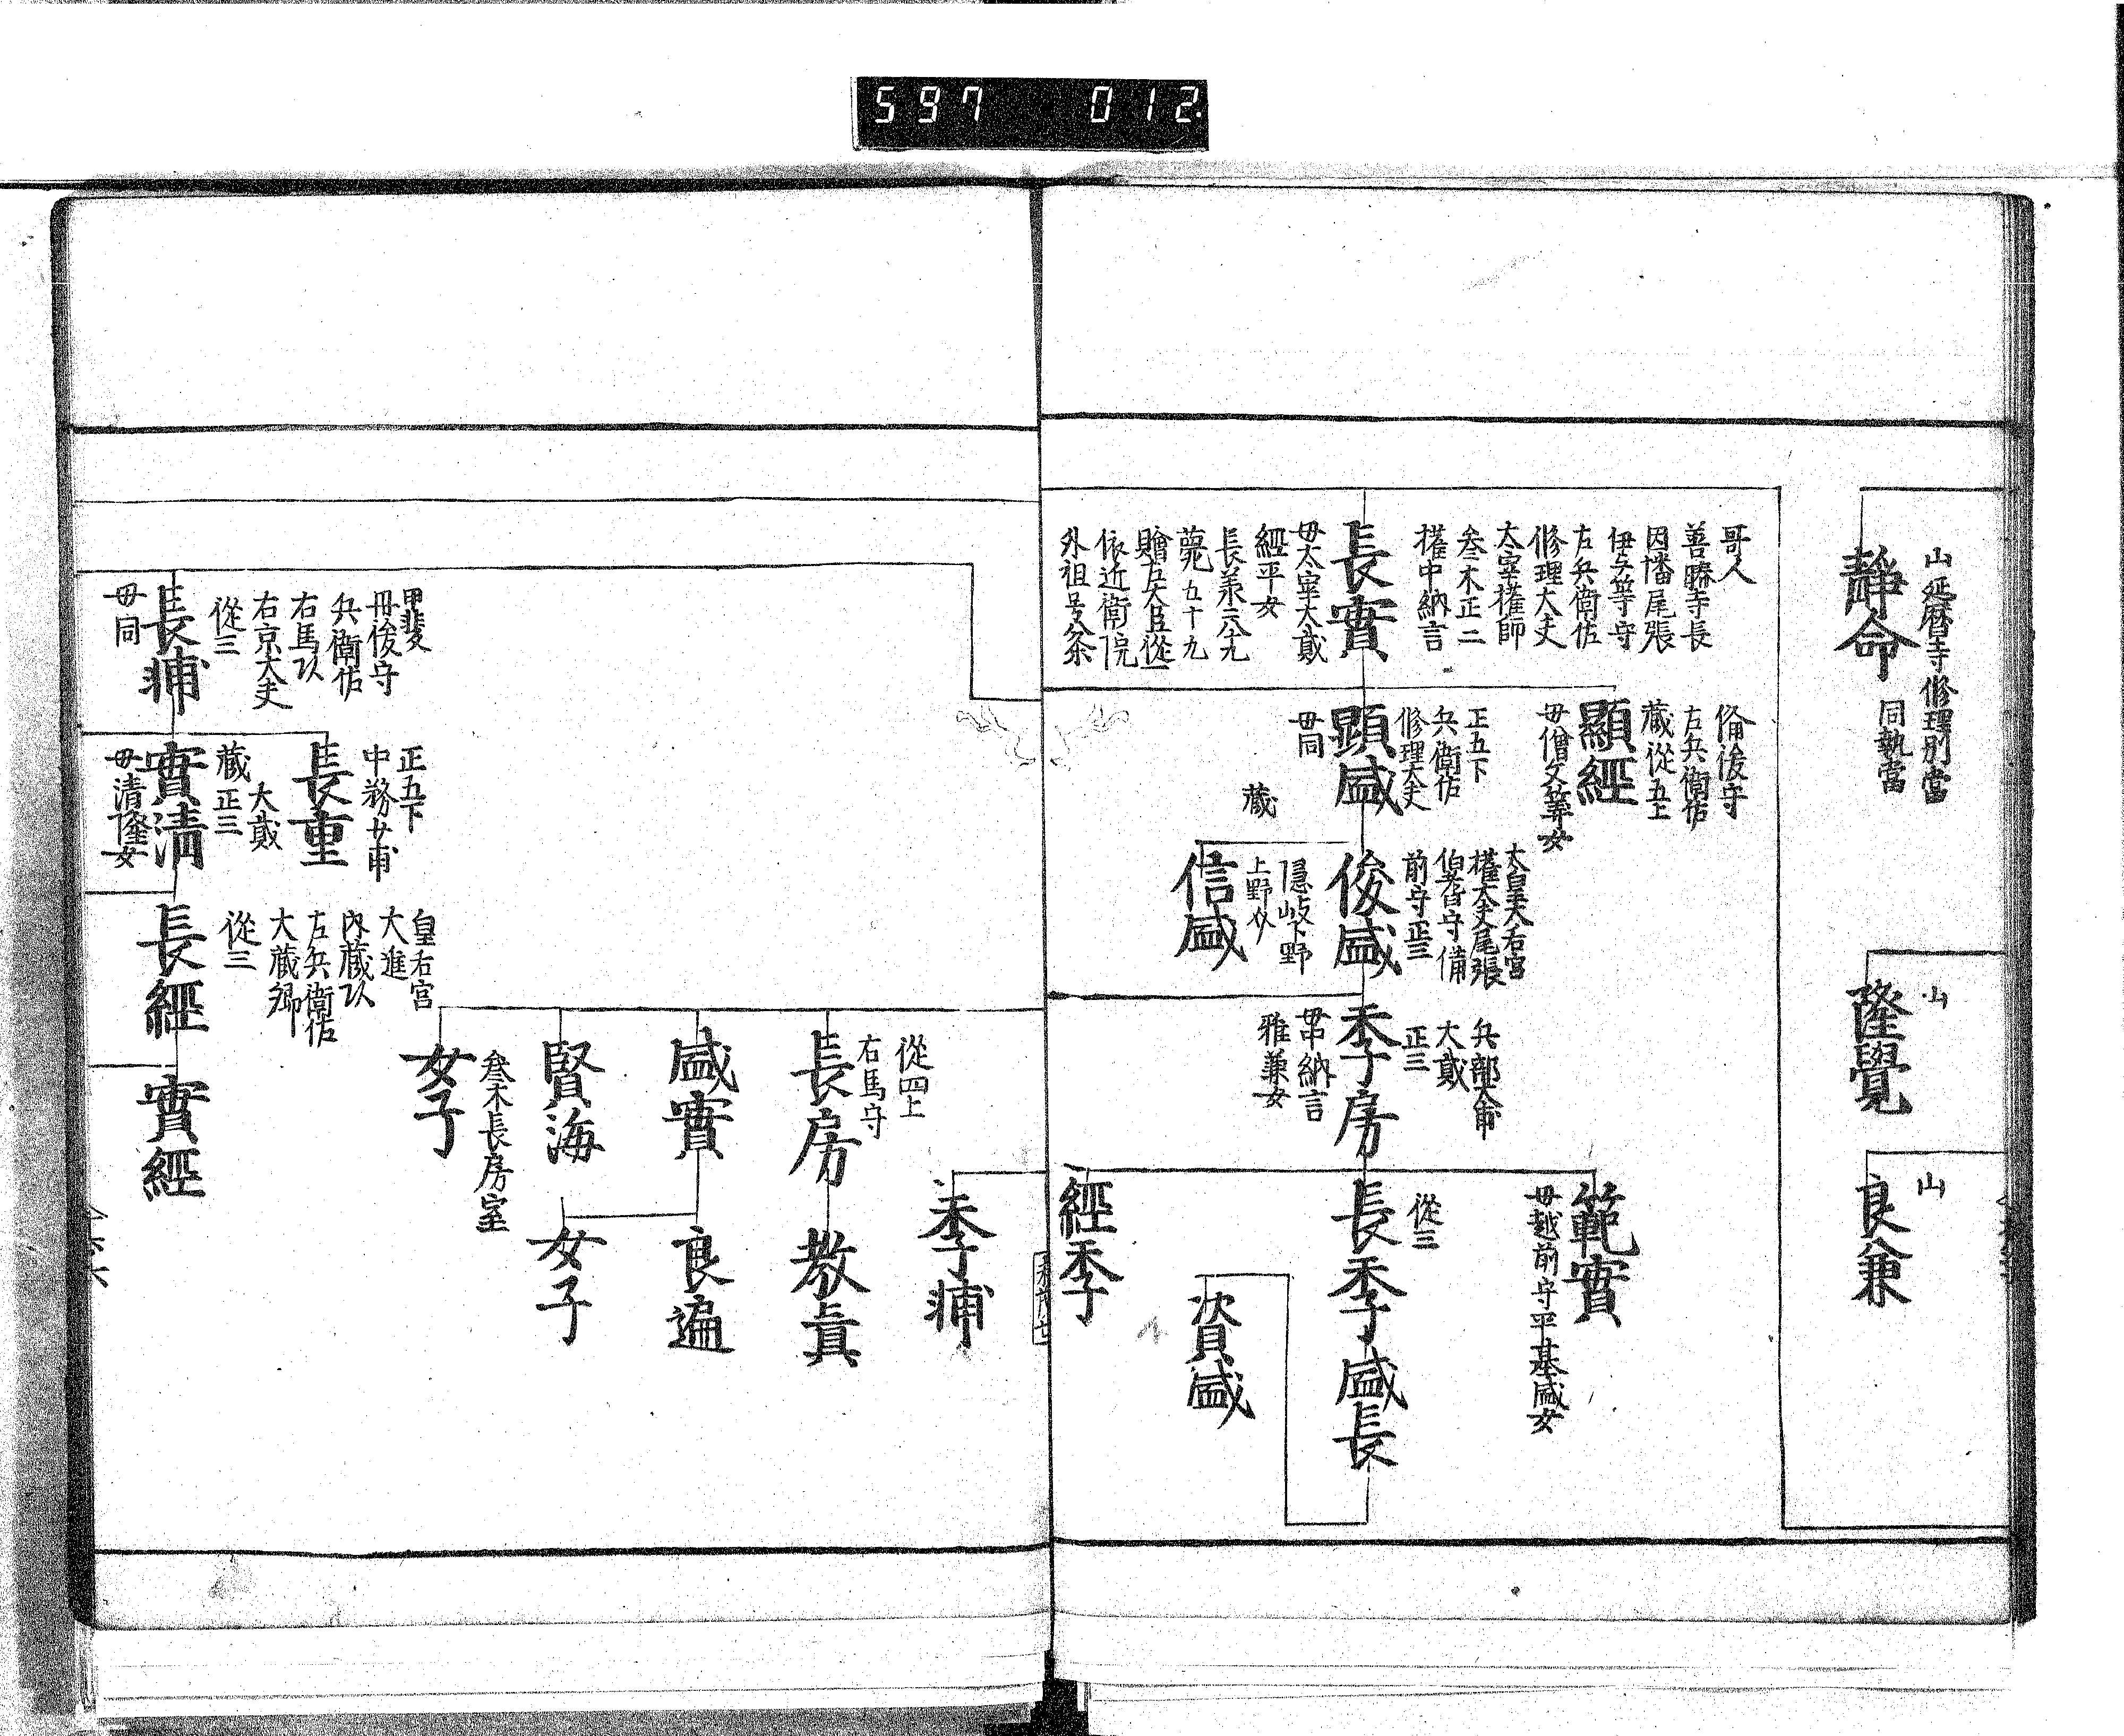 597 012
山 延暦寺修理別當
靜命
同執當
山
隆覺
山
良兼
哥人
善勝寺長
因幡尾張
伊与等守
左兵衛佐
修理大夫
太宰權帥
叅木正二
權中納言
長實
毋太宰大貮
經平女
長承二八十九
薨五十九
贈左大臣從一
依近衛院
外祖号
備後守
左兵衛佐
蔵從五上
顯經
正五下
兵衛佐
修理大夫
顕盛
毋同
太皇太后宮
權大夫尾張
伯耆守備
前守正三
俊盛
蔵
隠岐下野
上野
信盛
兵部大甫
大貮
正三
季房
毋中納言
雅兼女
範實
毋越前守平基盛女
從三
長季
盛長
資盛
經季
季輔
從四上
右馬守
長房
教眞
盛實
良遍
賢海
女子
叅木長房室
女子
甲斐
丹後守
兵衛佐
右馬
右京大夫
從三
長輔
毋同
正五下
中務少甫
長重
大貮
蔵正三
實清
毋清隆女
皇后宮
大進
内蔵
左兵衛佐
大蔵卿
從三
長經
實經